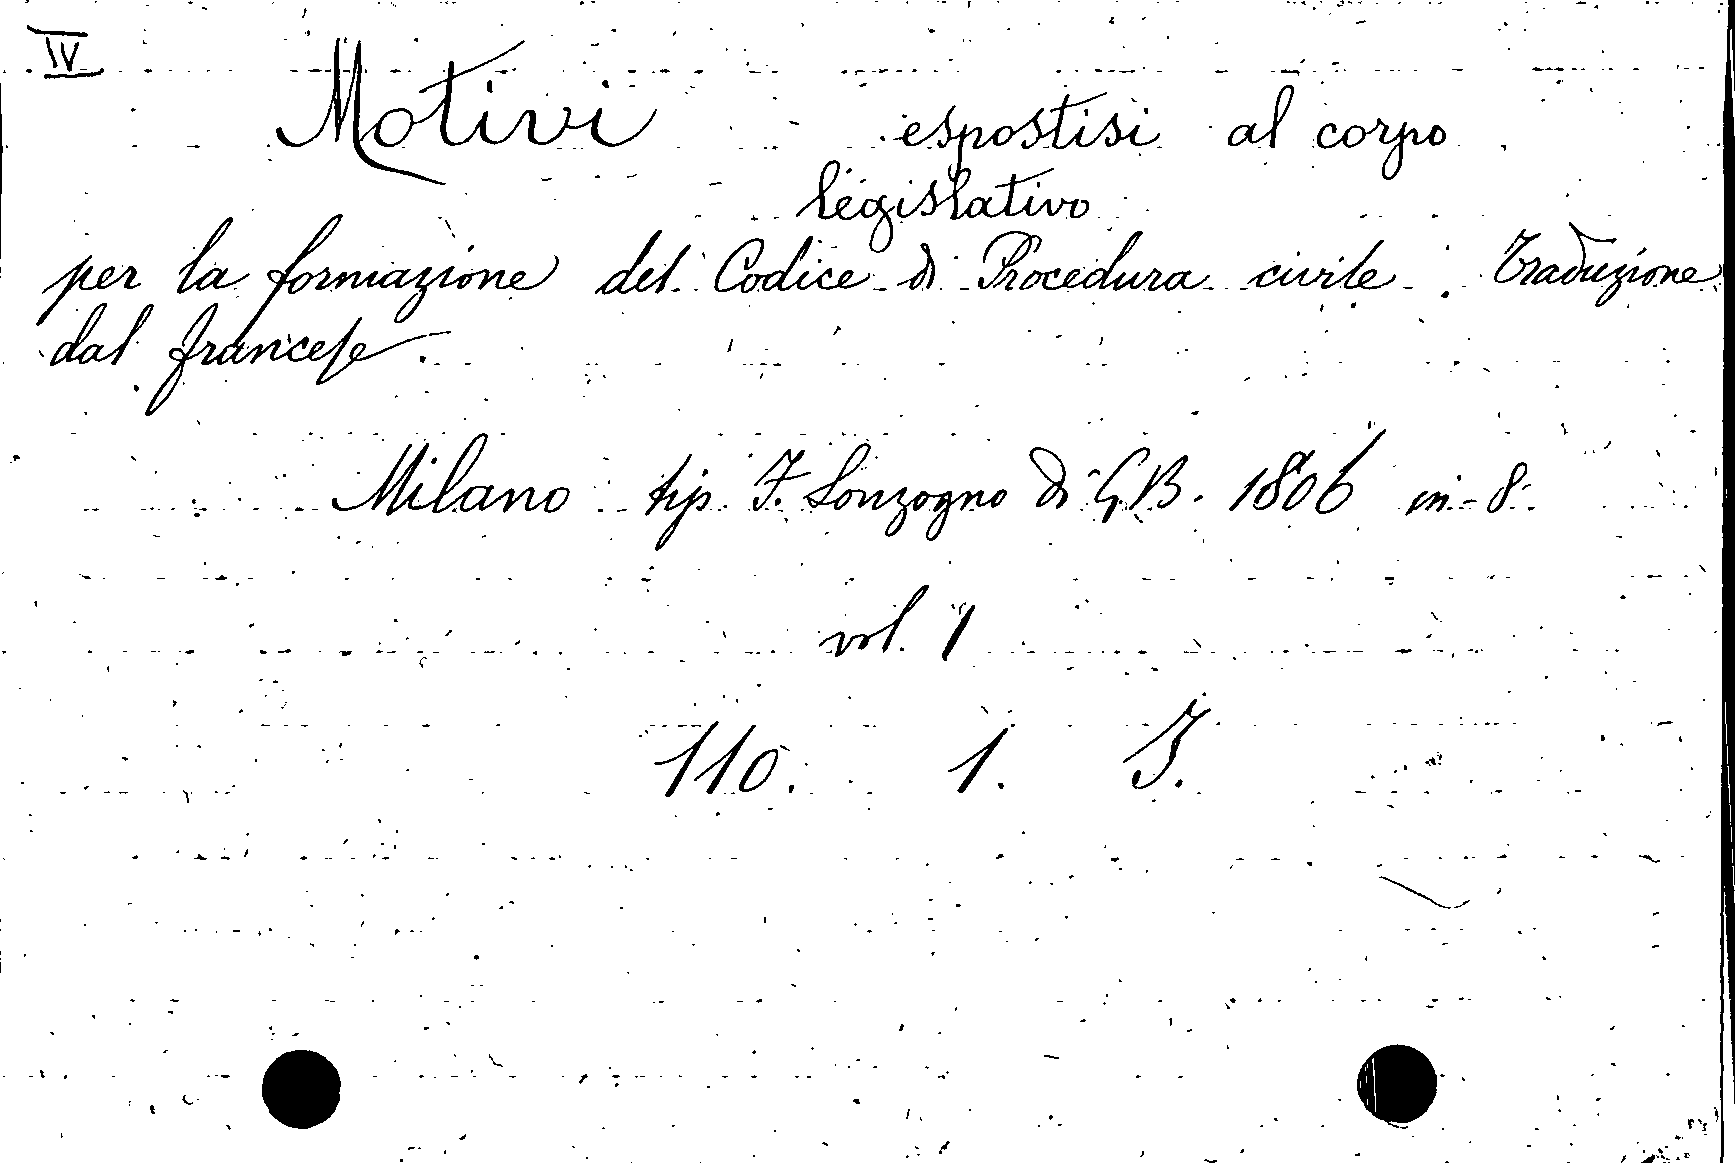 IV
Motivi espostisi al corpo
legislativo
per la formazione del Codice di Procedura civile. Traduzione
dal francese.
Milano tip. F. Sonzogno di G.B. 1806 in-8.
vol. 1
110. 1. I.